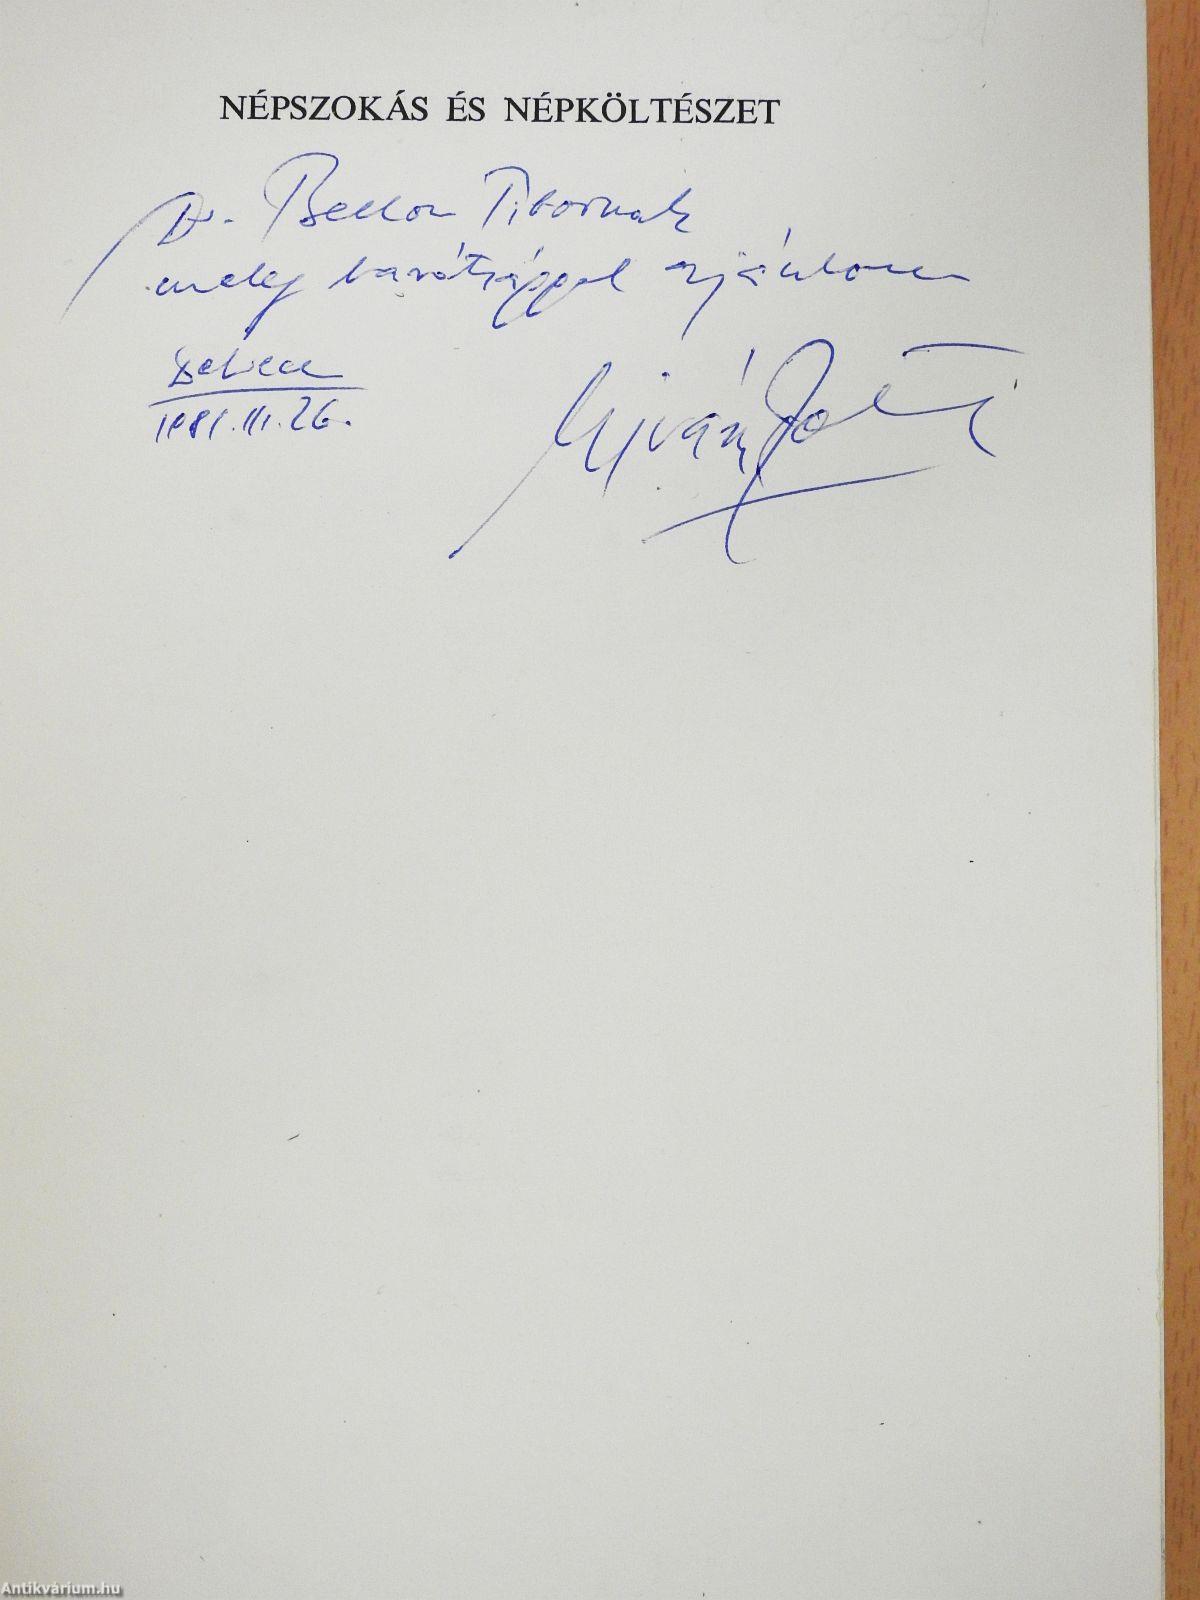 NÉPSZOKÁS ÉS NÉPKÖLTÉSZET
Dr. Bellon Tibornak
meleg barátsággal ajánlom
Debrecen
1981. III. 26.
Ujváry Zoltán
Antikvárium.hu